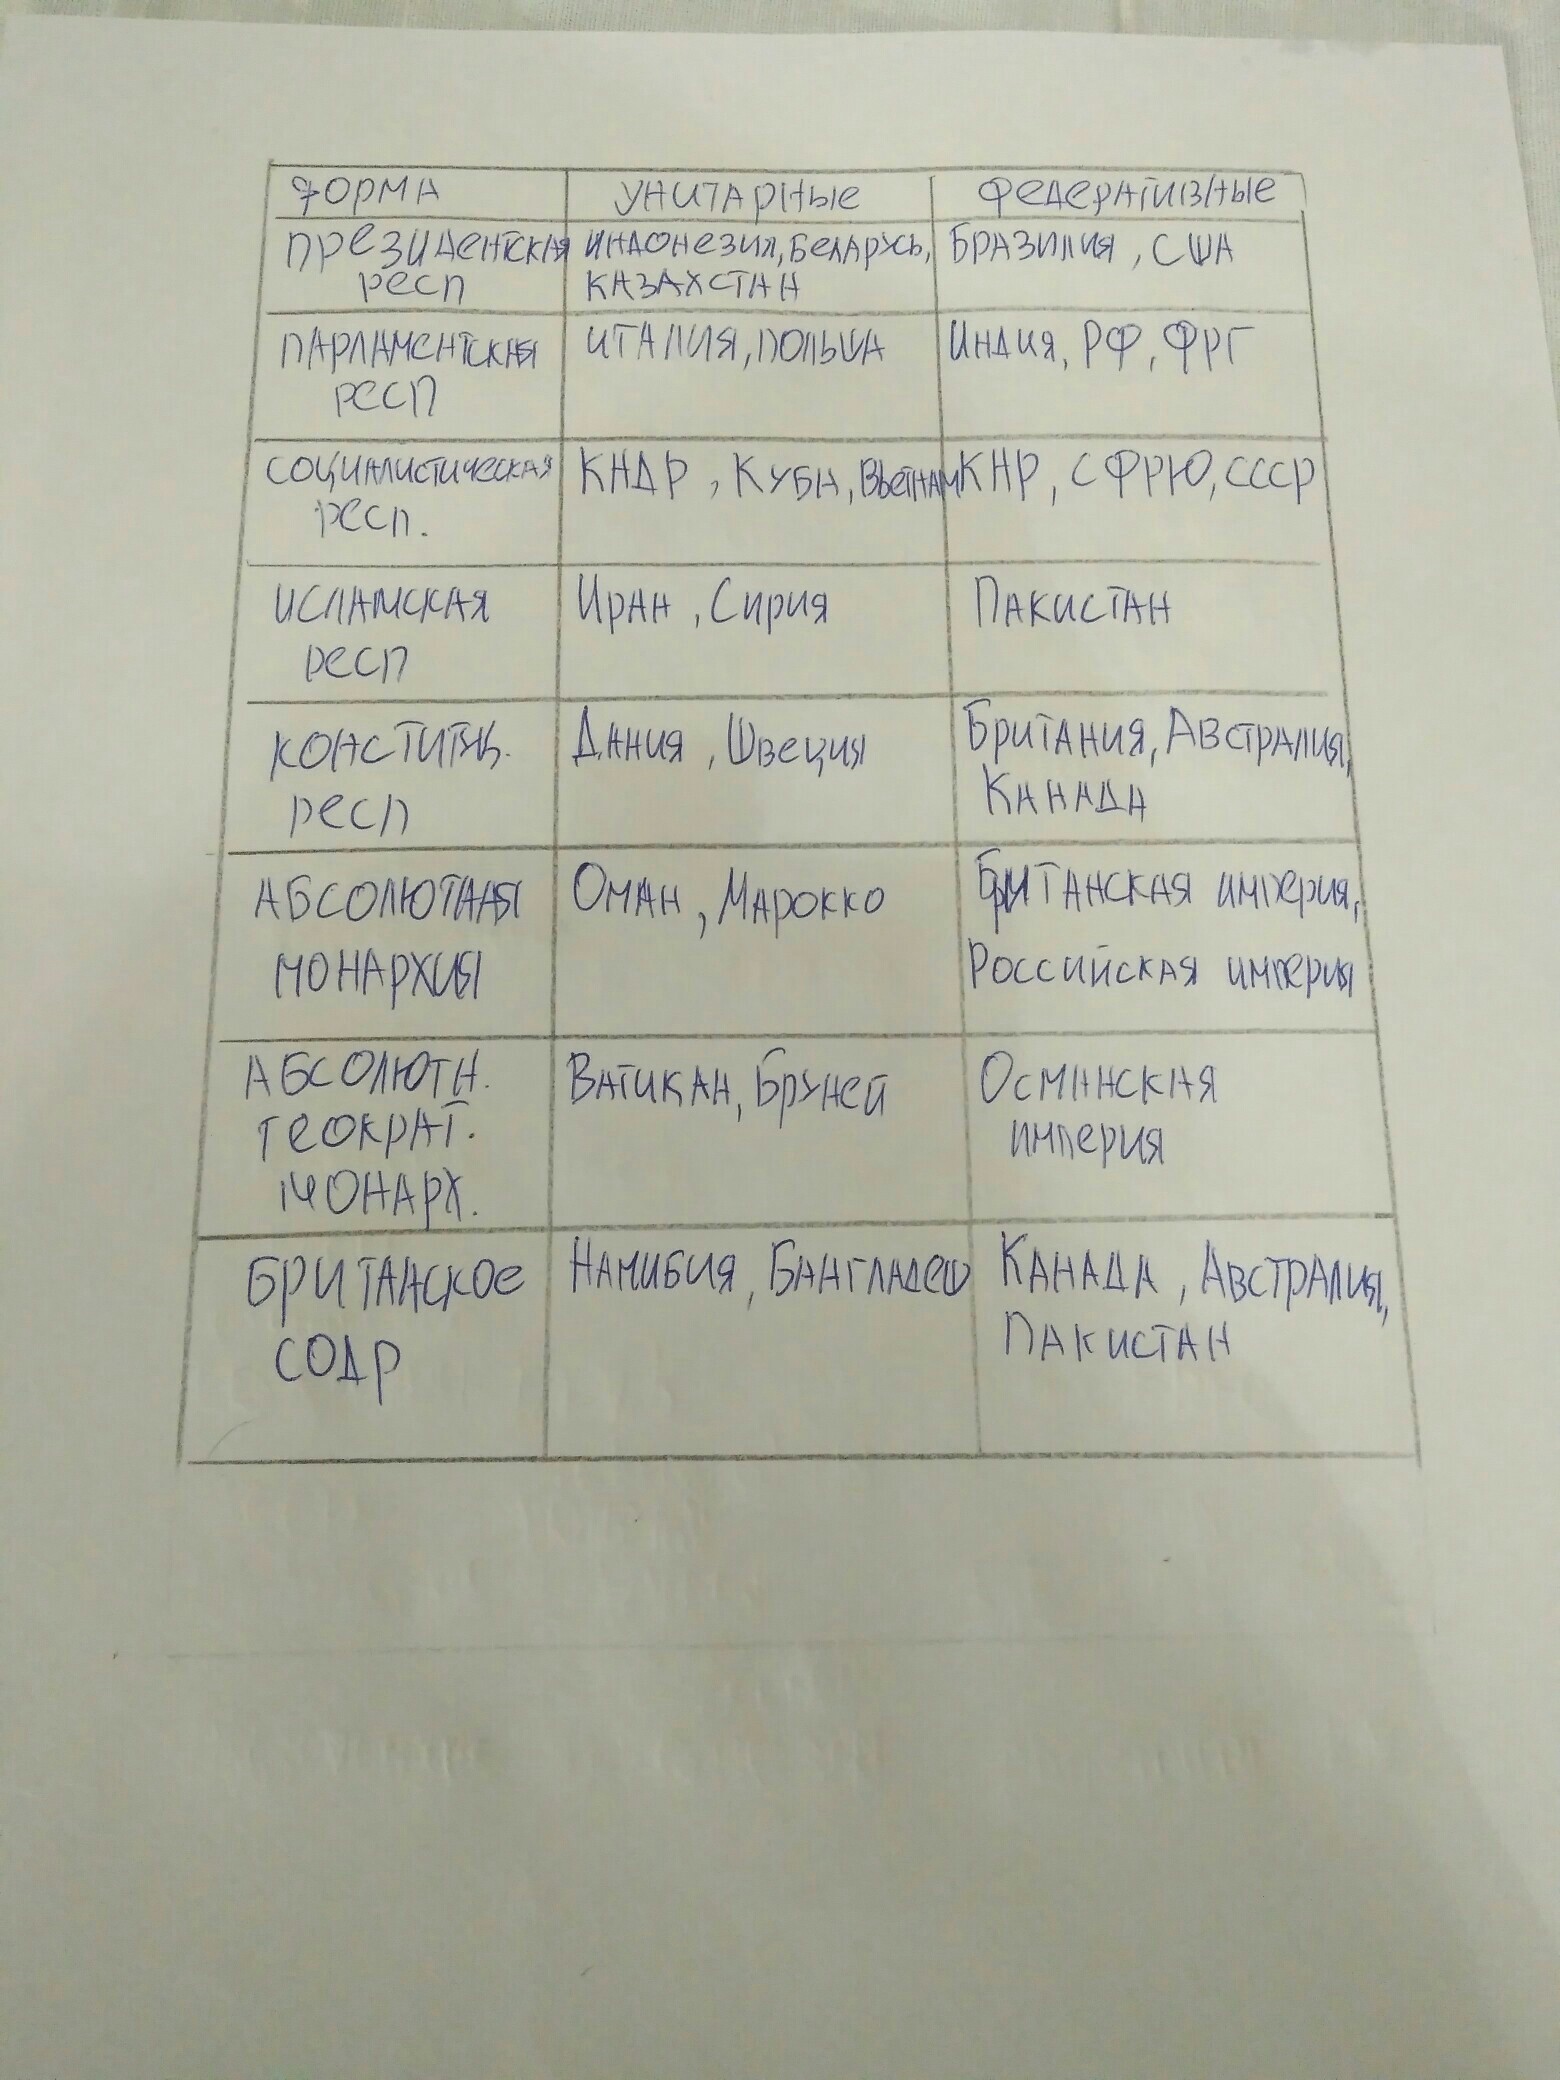 ФОРМА УНИТАРНЫЕ ФЕДЕРАТИВНЫЕ
ПРЕЗИДЕНТСКАЯ ИНДОНЕЗИЯ, БЕЛАРУСЬ, БРАЗИЛИЯ, США
РЕСП КАЗАХСТАН
ПАРЛАМЕНТСКАЯ ИТАЛИЯ, ПОЛЬША ИНДИЯ, РФ, ФРГ
РЕСП
СОЦИАЛИСТИЧЕСКАЯ КНДР, КУБА, ВЬЕТНАМ КНР, СФРЮ, СССР
РЕСП.
ИСЛАМСКАЯ ИРАН, СИРИЯ ПАКИСТАН
РЕСП
КОНСТИТУЦ. ДАНИЯ, ШВЕЦИЯ БРИТАНИЯ, АВСТРАЛИЯ,
РЕСП КАНАДА
АБСОЛЮТНАЯ ОМАН, МАРОККО БРИТАНСКАЯ ИМПЕРИЯ,
МОНАРХИЯ РОССИЙСКАЯ ИМПЕРИЯ
АБСОЛЮТН. ВАТИКАН, БРУНЕЙ ОСМАНСКАЯ
ТЕОКРАТ. ИМПЕРИЯ
МОНАРХ.
БРИТАНСКОЕ НАМИБИЯ, БАНГЛАДЕШ КАНАДА, АВСТРАЛИЯ,
СОДР ПАКИСТАН